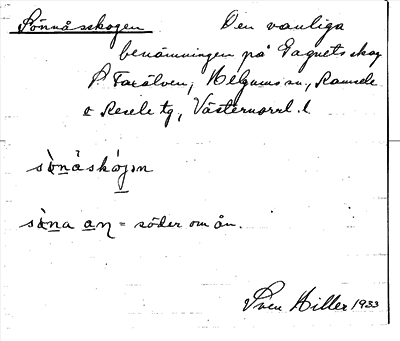 Sönnåsskogen Den vanliga
benämningen på Gagnets skog
S. Faxälven, Helgums sn, Ramsele
o Resele tg, Västernorrl. l
sònåskójɘn
sòna an = söder om ån.
Sven Hiller 1933